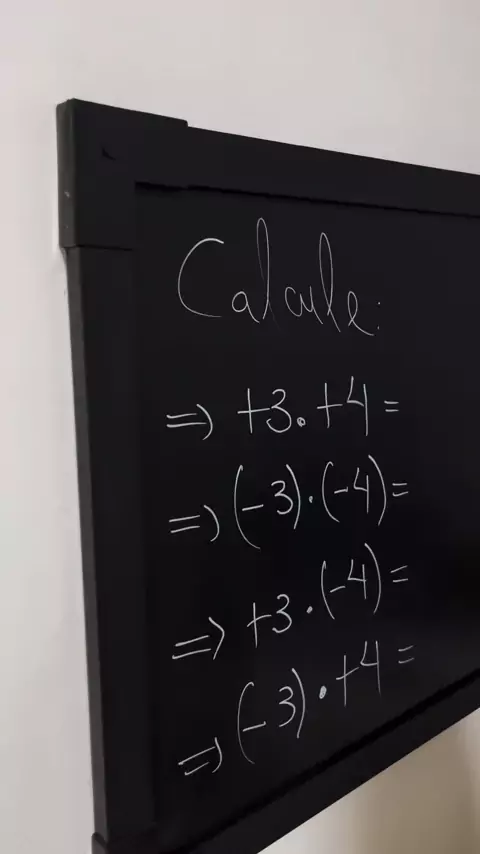 Calcule:
=> +3 . +4 =
=> (-3) . (-4) =
=> +3 . (-4) =
=> (-3) . +4 =